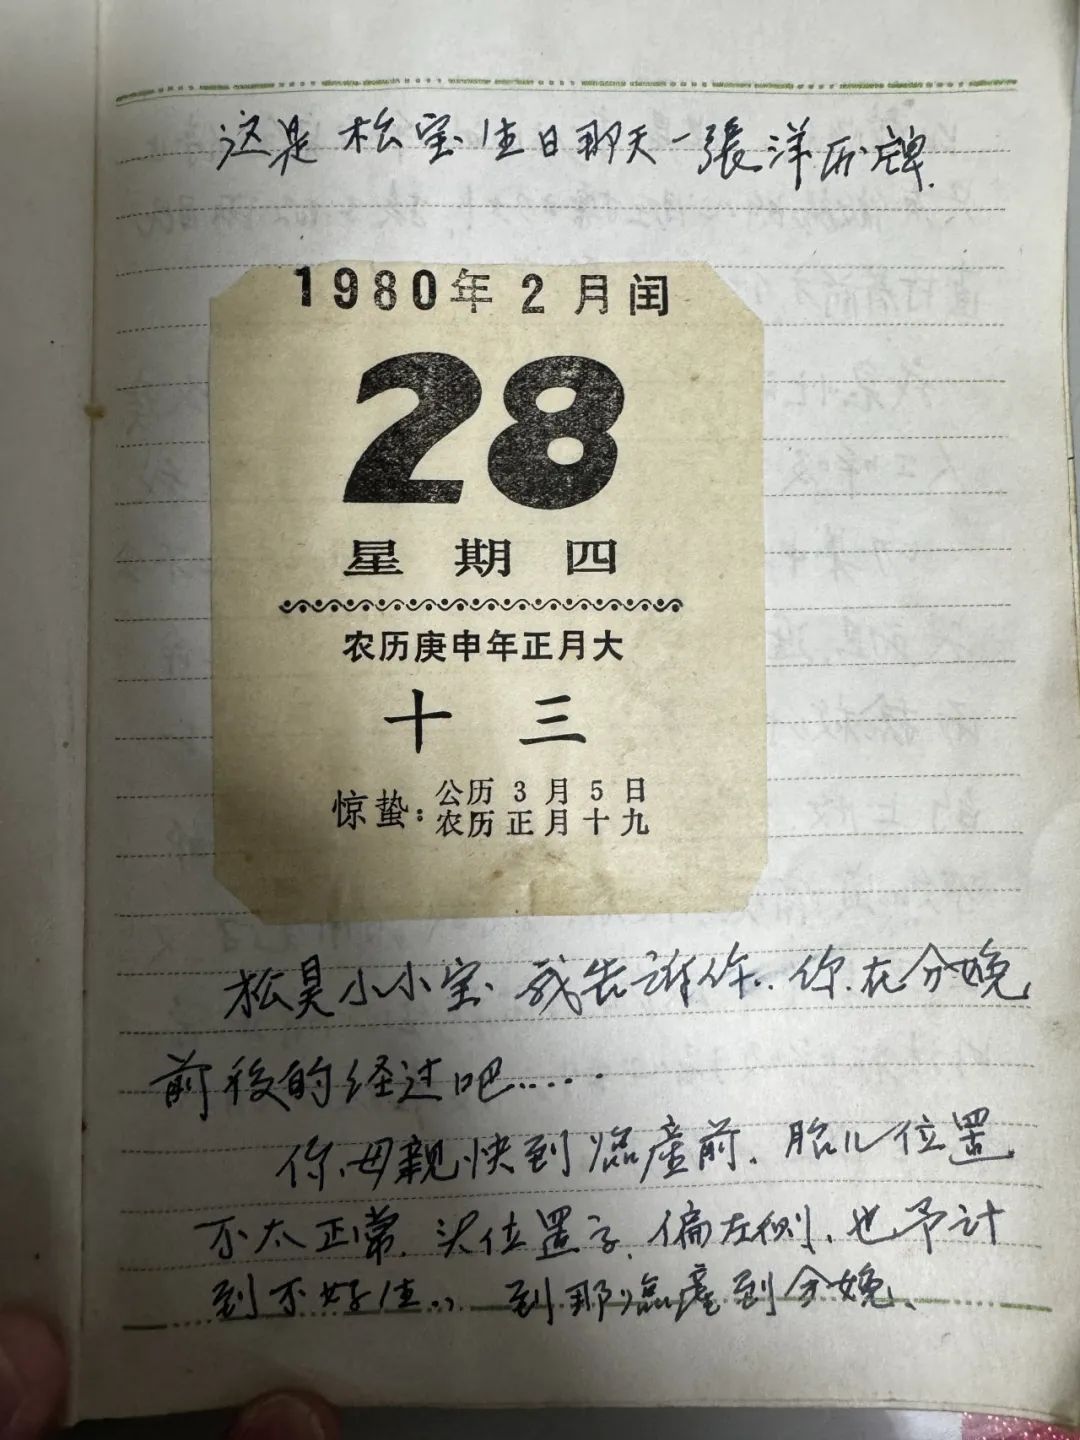 这是松宝生日那天一張洋历牌.
1980年2月闰
28
星期四
农历庚申年正月大
十三
惊蛰:公历3月5日
农历正月十九
松昊小小宝.我告诉你..你.在分娩
前後的经过吧......
你.母親.快到临産前.胎儿位置.
不太正常.头位置 偏左侧.也予计
到不好生.,到那临産到分娩、